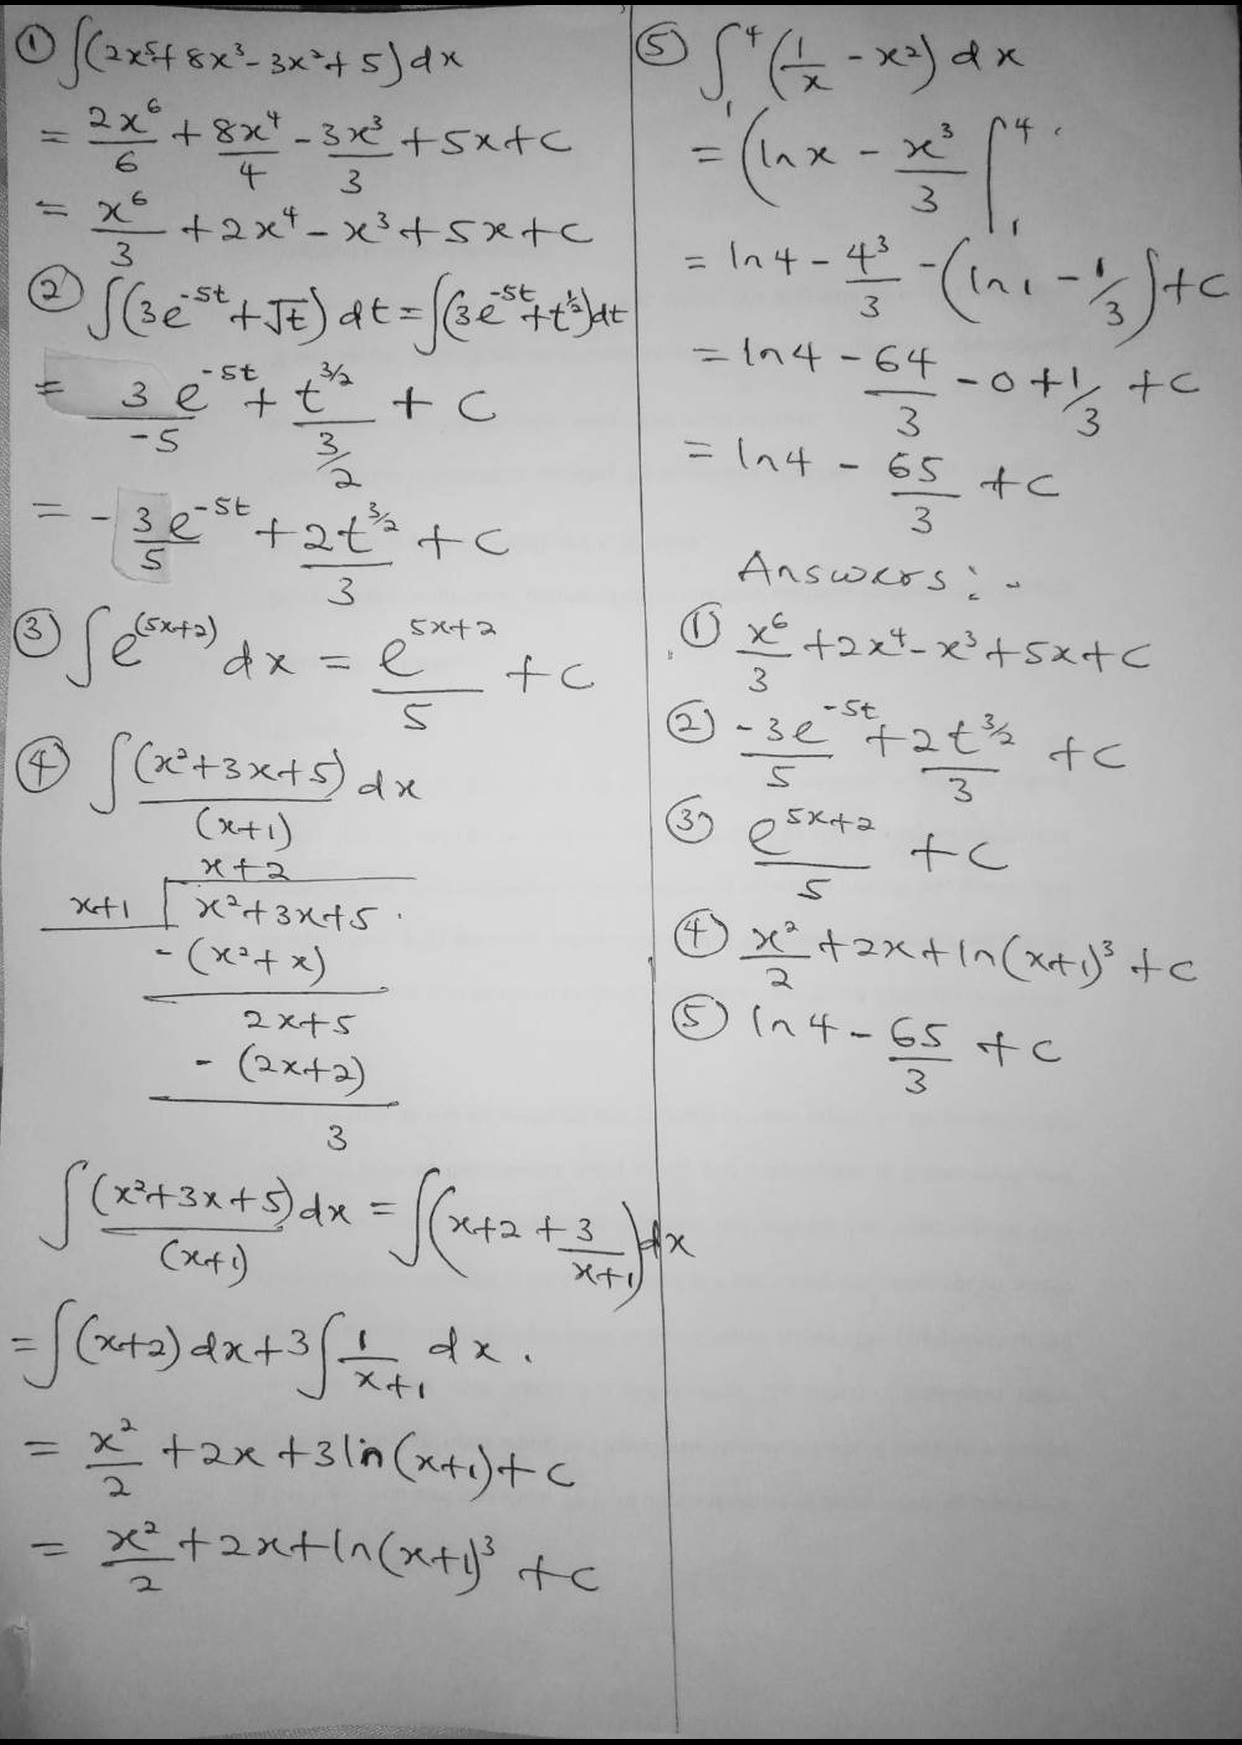 ① ∫(2x⁵+8x³-3x²+5)dx
= 2x⁶/6 + 8x⁴/4 - 3x³/3 + 5x+c
= x⁶/3 + 2x⁴ - x³ + 5x + c
② ∫(3e^-5t + √t) dt = ∫(3e^-5t + t^½)dt
= 3/-5 e^-5t + t^3/2 / 3/2 + c
= - 3/5 e^-5t + 2t^3/2 / 3 + c
③ ∫e^(5x+2) dx = e^5x+2 / 5 + c
④ ∫(x²+3x+5)/(x+1) dx
x+2
x+1 x²+3x+5
-(x²+x)
2x+5
-(2x+2)
3
∫(x²+3x+5)/(x+1) dx = ∫(x+2 + 3/x+1)dx
= ∫(x+2)dx + 3∫ 1/x+1 dx.
= x²/2 + 2x + 3ln(x+1)+c
= x²/2 + 2x + ln(x+1)³ + c
⑤ ∫₁⁴ (1/x - x²) dx
= (ln x - x³/3 ∫₁⁴
= ln4 - 4³/3 - (ln1 - 1/3)+c
= ln4 - 64/3 - 0 + 1/3 + c
= ln4 - 65/3 + c
Answers:-
① x⁶/3 + 2x⁴ - x³ + 5x + c
② -3e^-5t / 5 + 2t^3/2 / 3 + c
③ e^5x+2 / 5 + c
④ x²/2 + 2x + ln(x+1)³ + c
⑤ ln4 - 65/3 + c